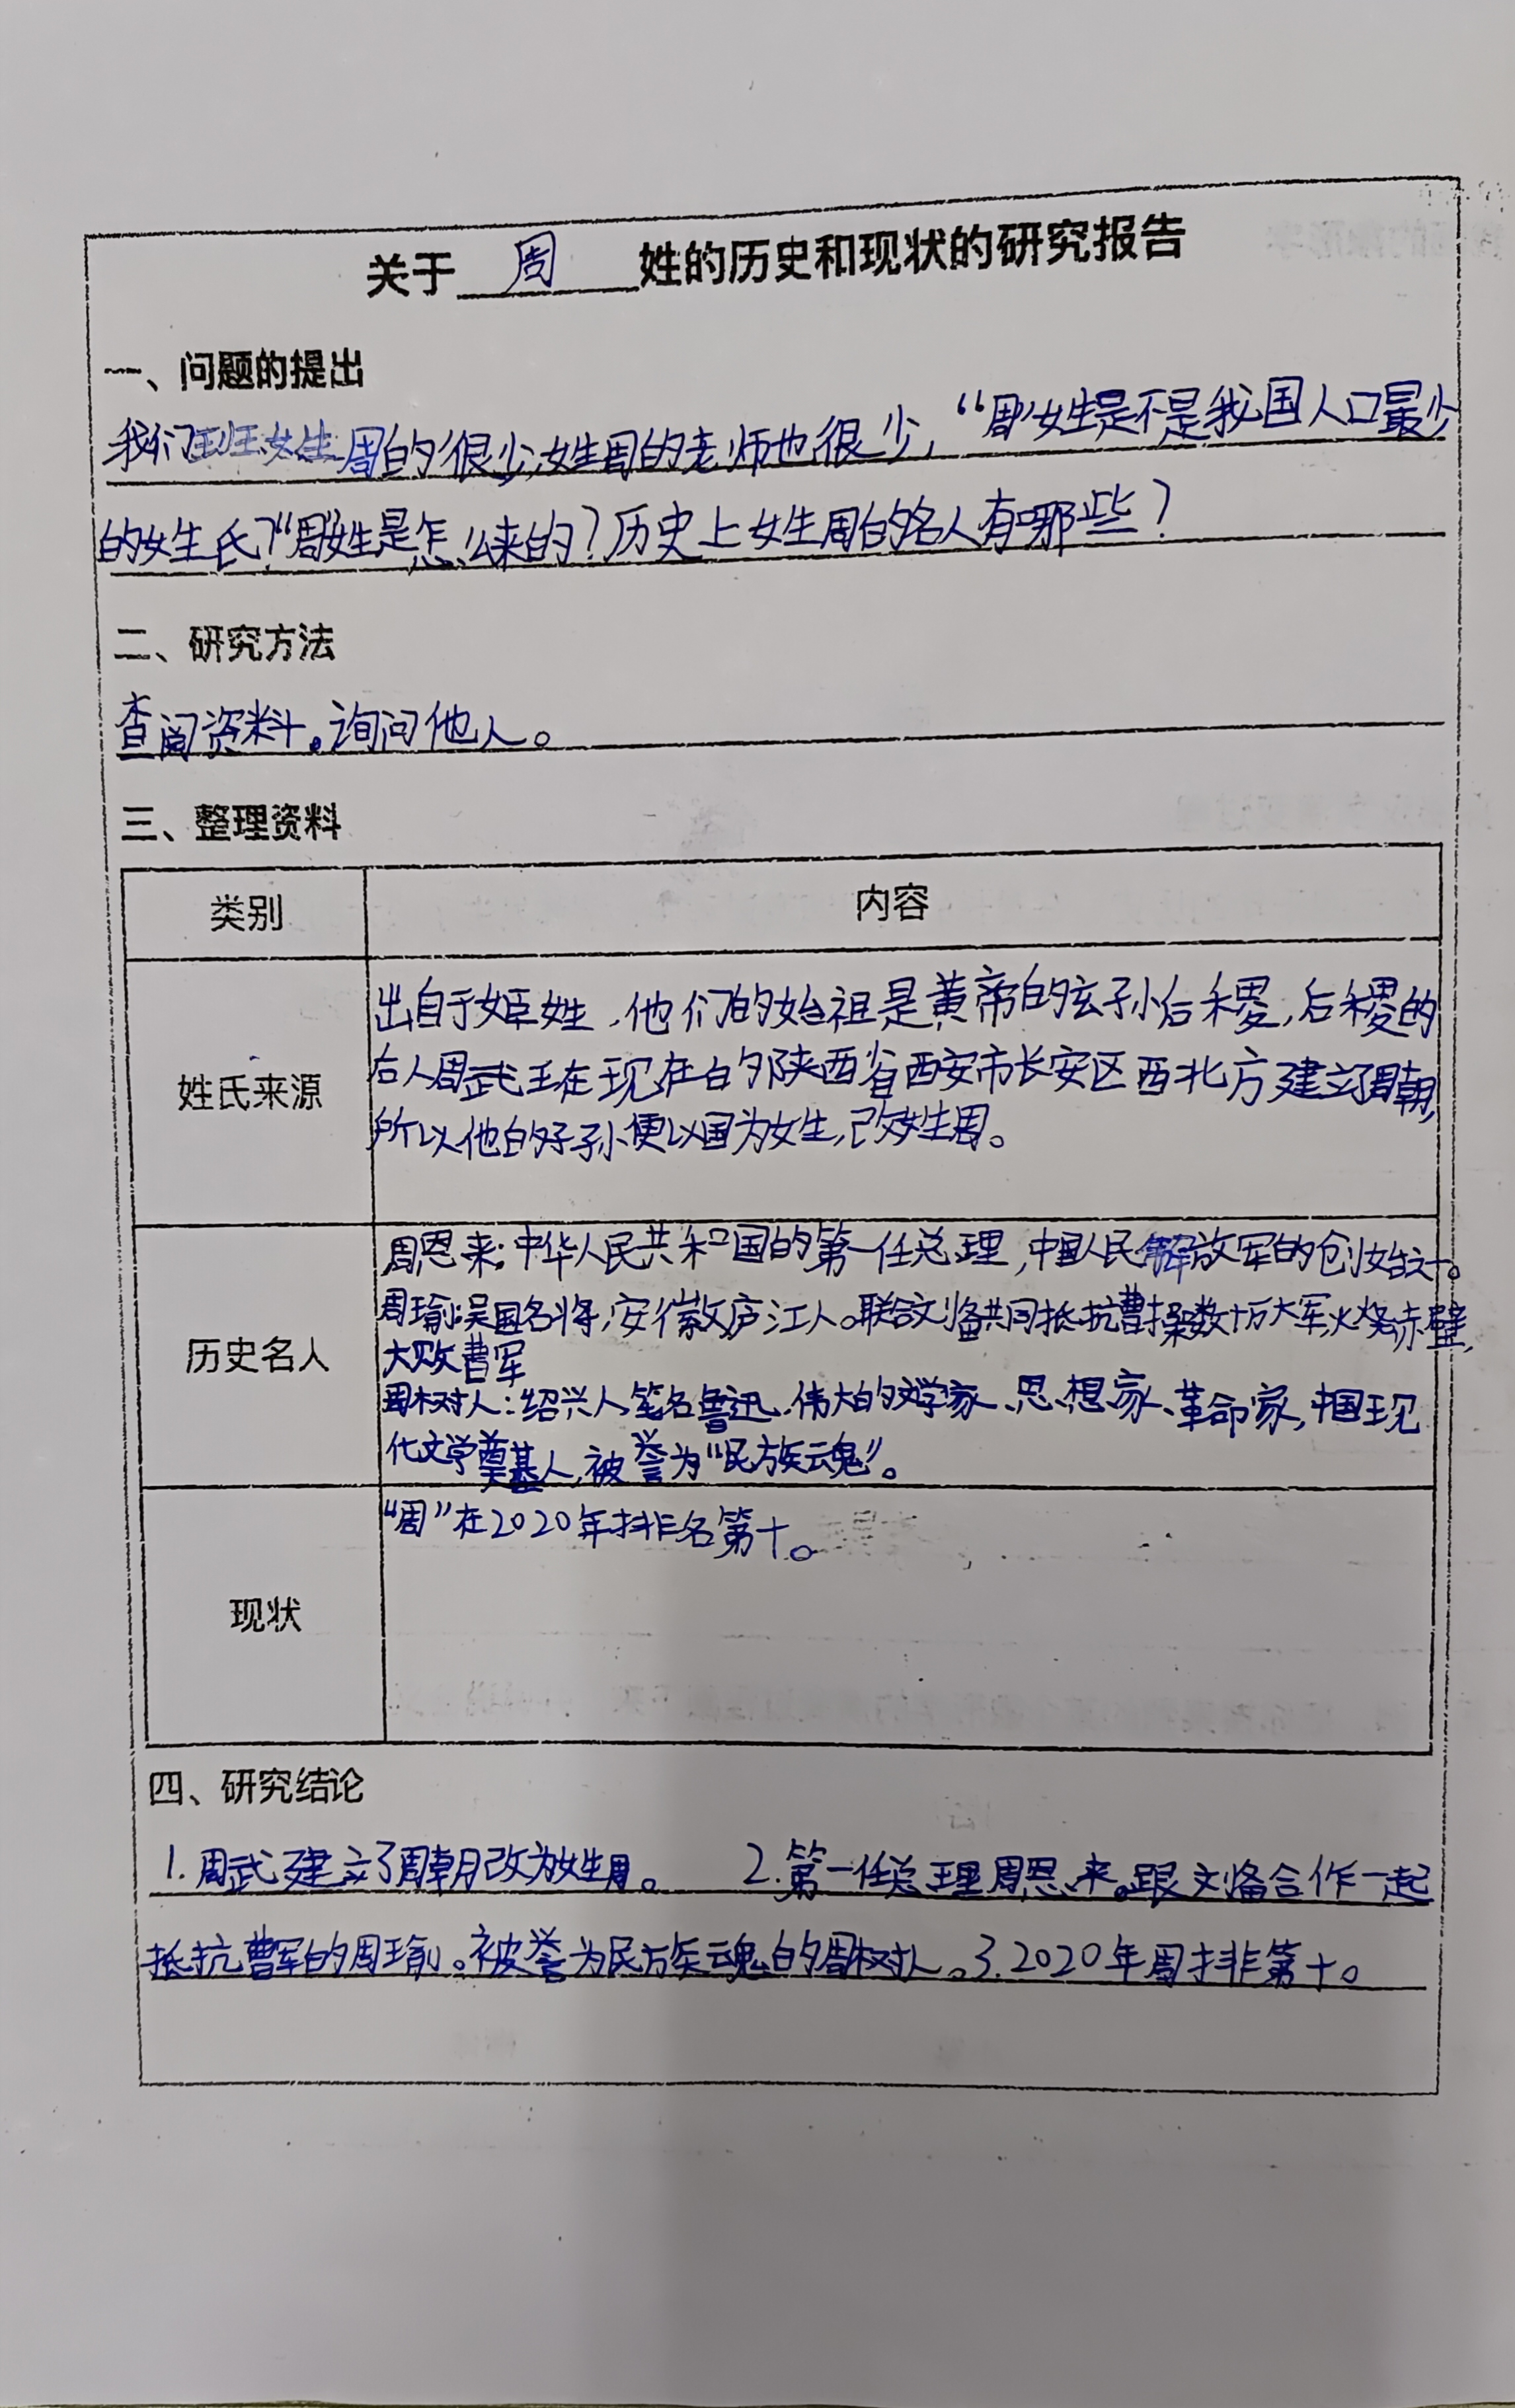 关于 周 姓的历史和现状的研究报告
一、问题的提出
我们班姓周的很少,姓周的老师也很少,“周”姓是不是我国人口最少
的姓氏?“周”姓是怎么来的?历史上姓周的名人有哪些?
二、研究方法
查阅资料。询问他人。
三、整理资料
类别
内容
姓氏来源
出自于姬姓,他们的始祖是黄帝的玄孙后稷,后稷的
后人周武王在现在的陕西省西安市长安区西北方建立了周朝,
所以他的子孙便以国为姓,改姓周。
历史名人
周恩来:中华人民共和国的第一任总理,中国人民解放军的创始之一。
周瑜:吴国名将,安徽庐江人。联合刘备共同抵抗曹操数十万大军,火烧赤壁,
大败曹军
周树人:绍兴人,笔名鲁迅,伟大的文学家、思想家、革命家,中国现
代文学奠基人,被誉为“民族魂”。
现状
“周”在2020年排名第十。
四、研究结论
1.周武建立了周朝改为姓周。 2.第一任总理周恩来。跟刘备合作一起
抵抗曹军的周瑜。被誉为民族魂的周树人。3.2020年周排第十。